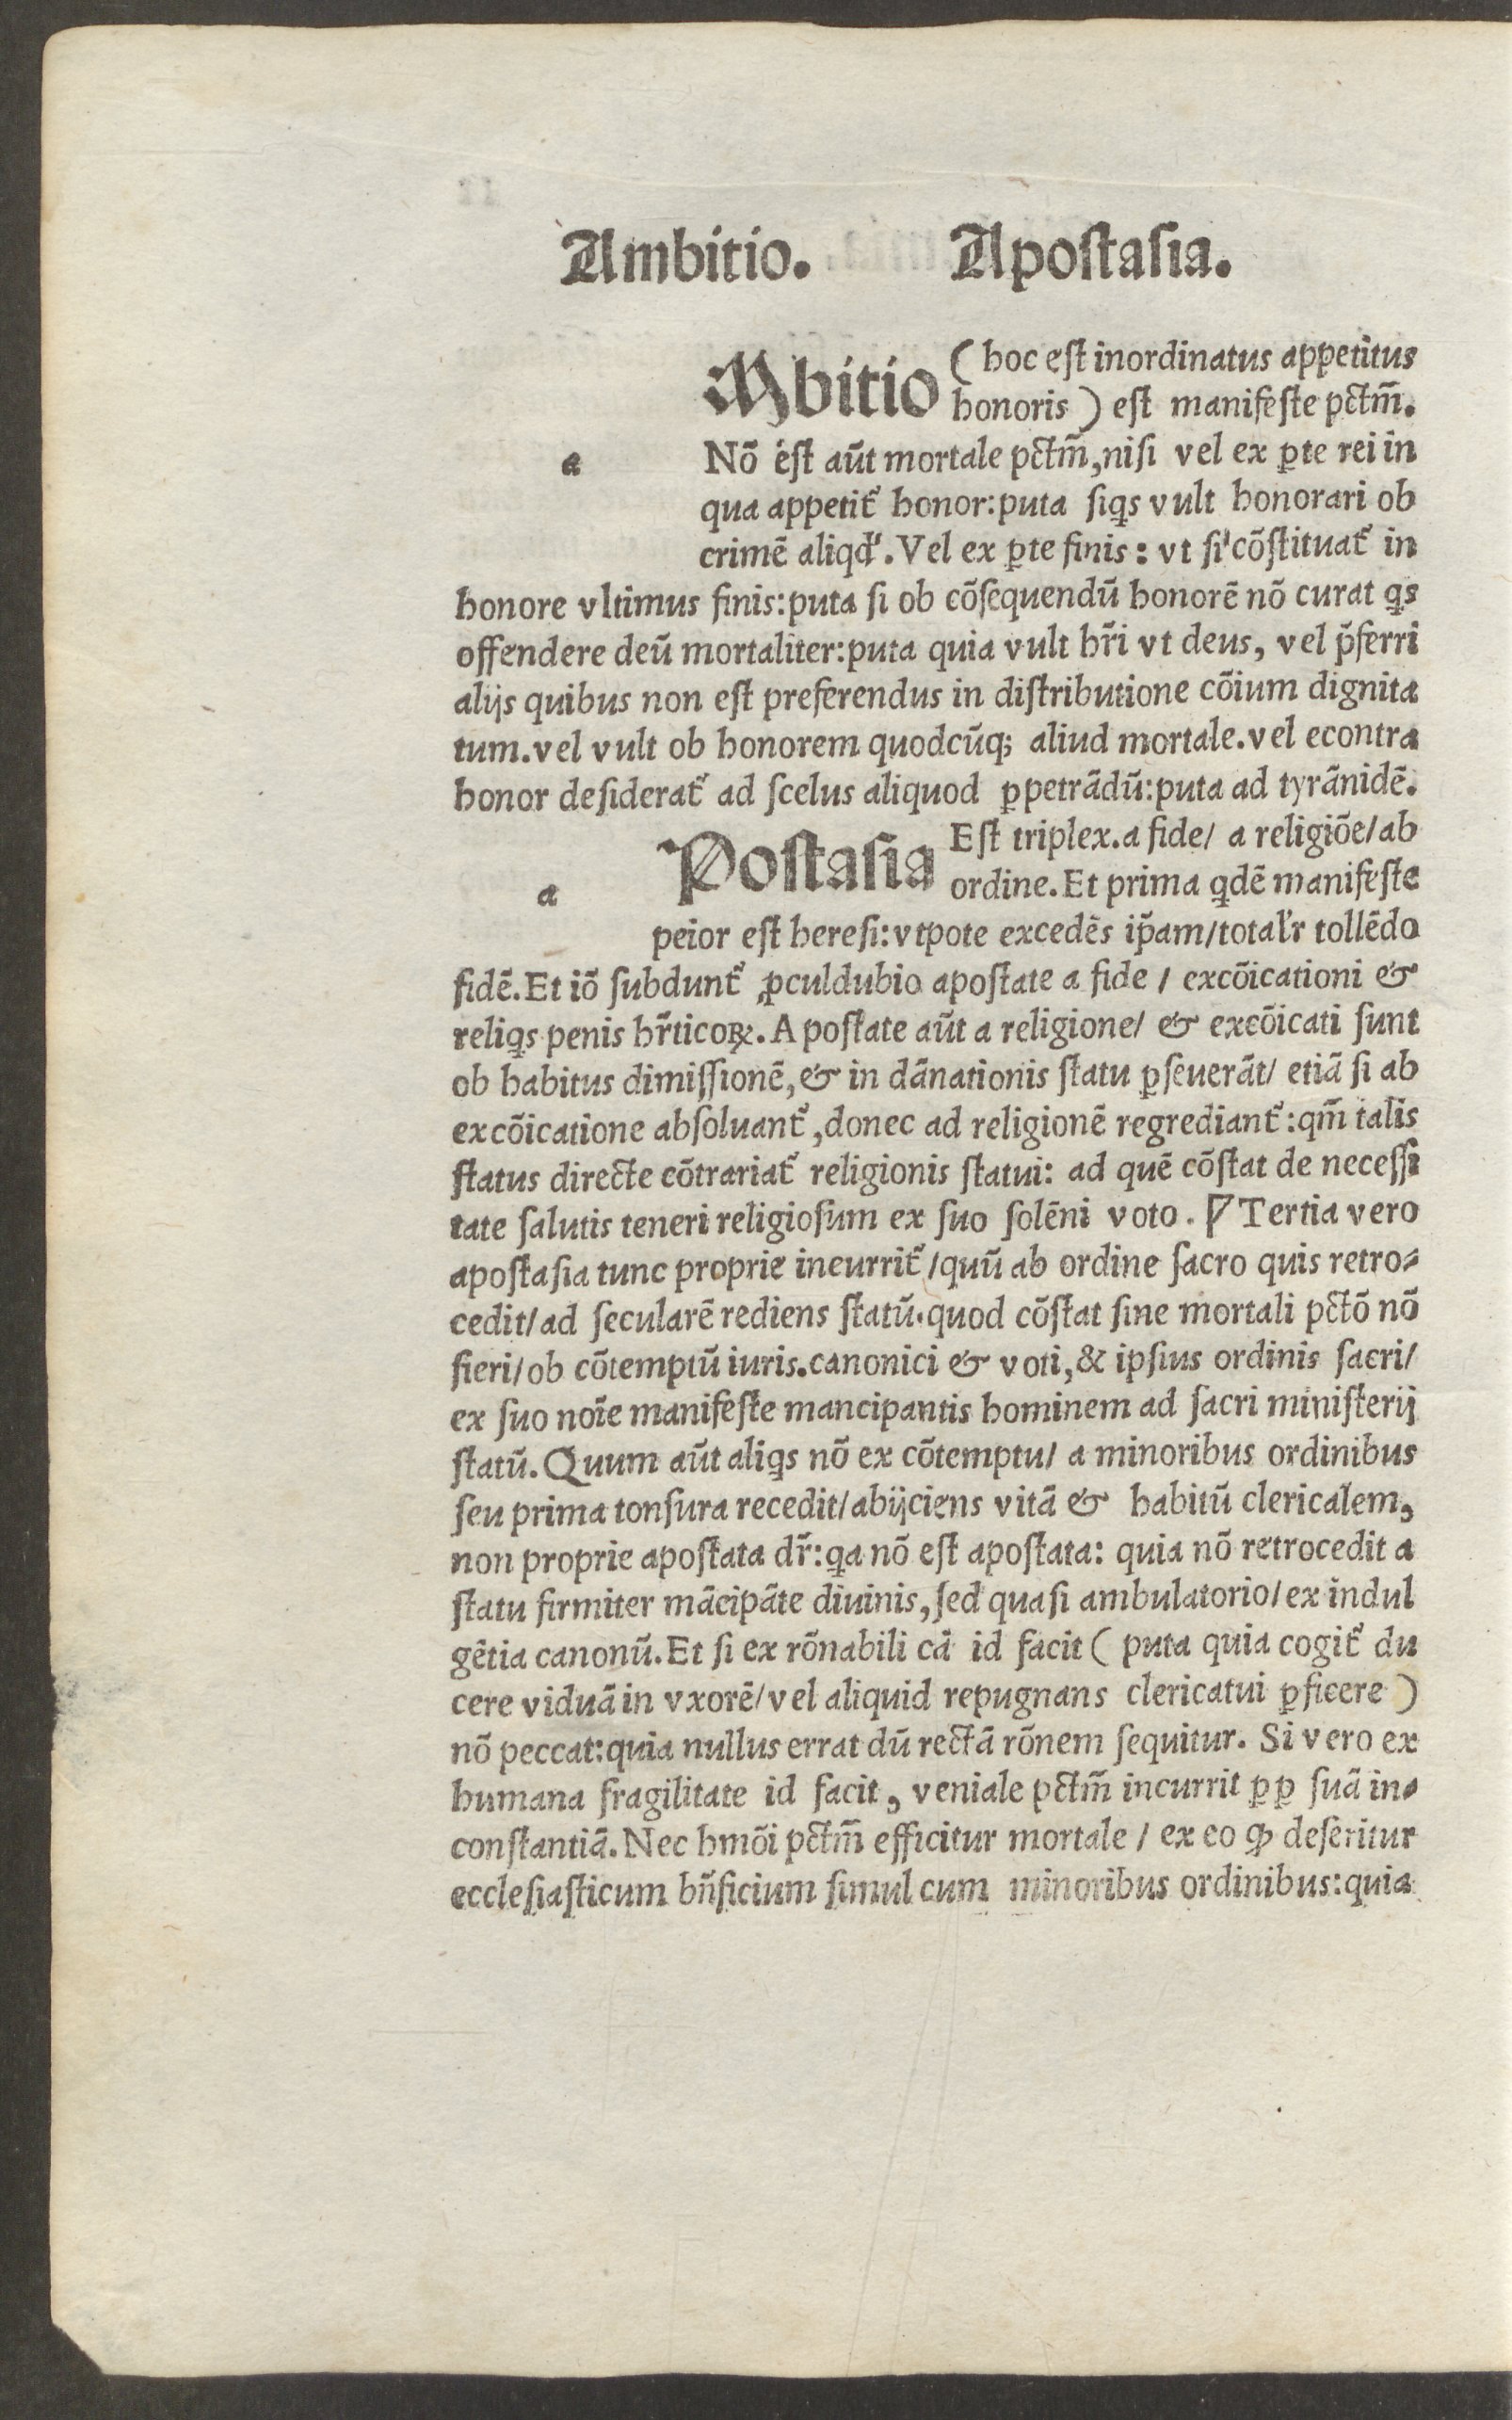 Ambitio. Apostasia.
Mbitio (hoc est inordinatus appetitus
honoris) est manifeste pctm̃.
a Nõ est aũt mortale pctm̃, nisi vel ex ꝑte rei in
qua appetit᷑ honor: puta siqs vult honorari ob
crimẽ aliqd'. Vel ex ꝑte finis: vt si cõstituat᷑ in
honore vltimus finis: puta si ob cõsequendũ honorẽ nõ curat qs
offendere deũ mortaliter: puta quia vult hr̃i vt deus, vel p̃ferri
alijs quibus non est preferendus in distributione cõium dignita
tum. vel vult ob honorem quodcũq; aliud mortale. vel econtra
honor desiderat᷑ ad scelus aliquod ꝑpetrãdũ: puta ad tyrãnidẽ.
Postasia Est triplex. a fide/ a religiõe/ ab
a ordine. Et prima qdẽ manifeste
peior est heresi: vtpote excedẽs ip̃am/ total'r tollẽdo
fidẽ. Et iõ subdunt᷑ ꝓculdubio apostate a fide / excõicationi &
reliqs penis hr̃ticoꝝ. Apostate aũt a religione/ & excõicati sunt
ob habitus dimissionẽ, & in dãnationis statu ꝑseuerãt/ etiã si ab
excõicatione absoluant᷑, donec ad religionẽ regrediant᷑: qm̃ talis
status directe cõtrariat᷑ religionis statui: ad quẽ cõstat de necessi
tate salutis teneri religiosum ex suo solẽni voto. ¶ Tertia vero
apostasia tunc proprie incurrit᷑ / quũ ab ordine sacro quis retro⸗
cedit/ ad secularẽ rediens statũ. quod cõstat sine mortali pctõ nõ
fieri/ ob cõtemptũ iuris. canonici & voti, & ipsius ordinis sacri/
ex suo noĩe manifeste mancipantis hominem ad sacri ministerij
statũ. Quum aũt aliqs nõ ex cõtemptu/ a minoribus ordinibus
seu prima tonsura recedit/ abijciens vitã & habitũ clericalem,
non proprie apostata dr̃: qa nõ est apostata: quia nõ retrocedit a
statu firmiter mãcipãte diuinis, sed quasi ambulatorio/ ex indul
gẽtia canonũ. Et si ex rõnabili cã id facit ( puta quia cogit᷑ du
cere viduã in vxorẽ/ vel aliquid repugnans clericatui ꝑficere )
nõ peccat: quia nullus errat dũ rectã rõnem sequitur. Si vero ex
humana fragilitate id facit, veniale pctm̃ incurrit ꝑꝑ suã in⸗
constantiã. Nec hmõi pctm̃ efficitur mortale / ex eo ꝙ deseritur
ecclesiasticum bñficium simul cum minoribus ordinibus: quia